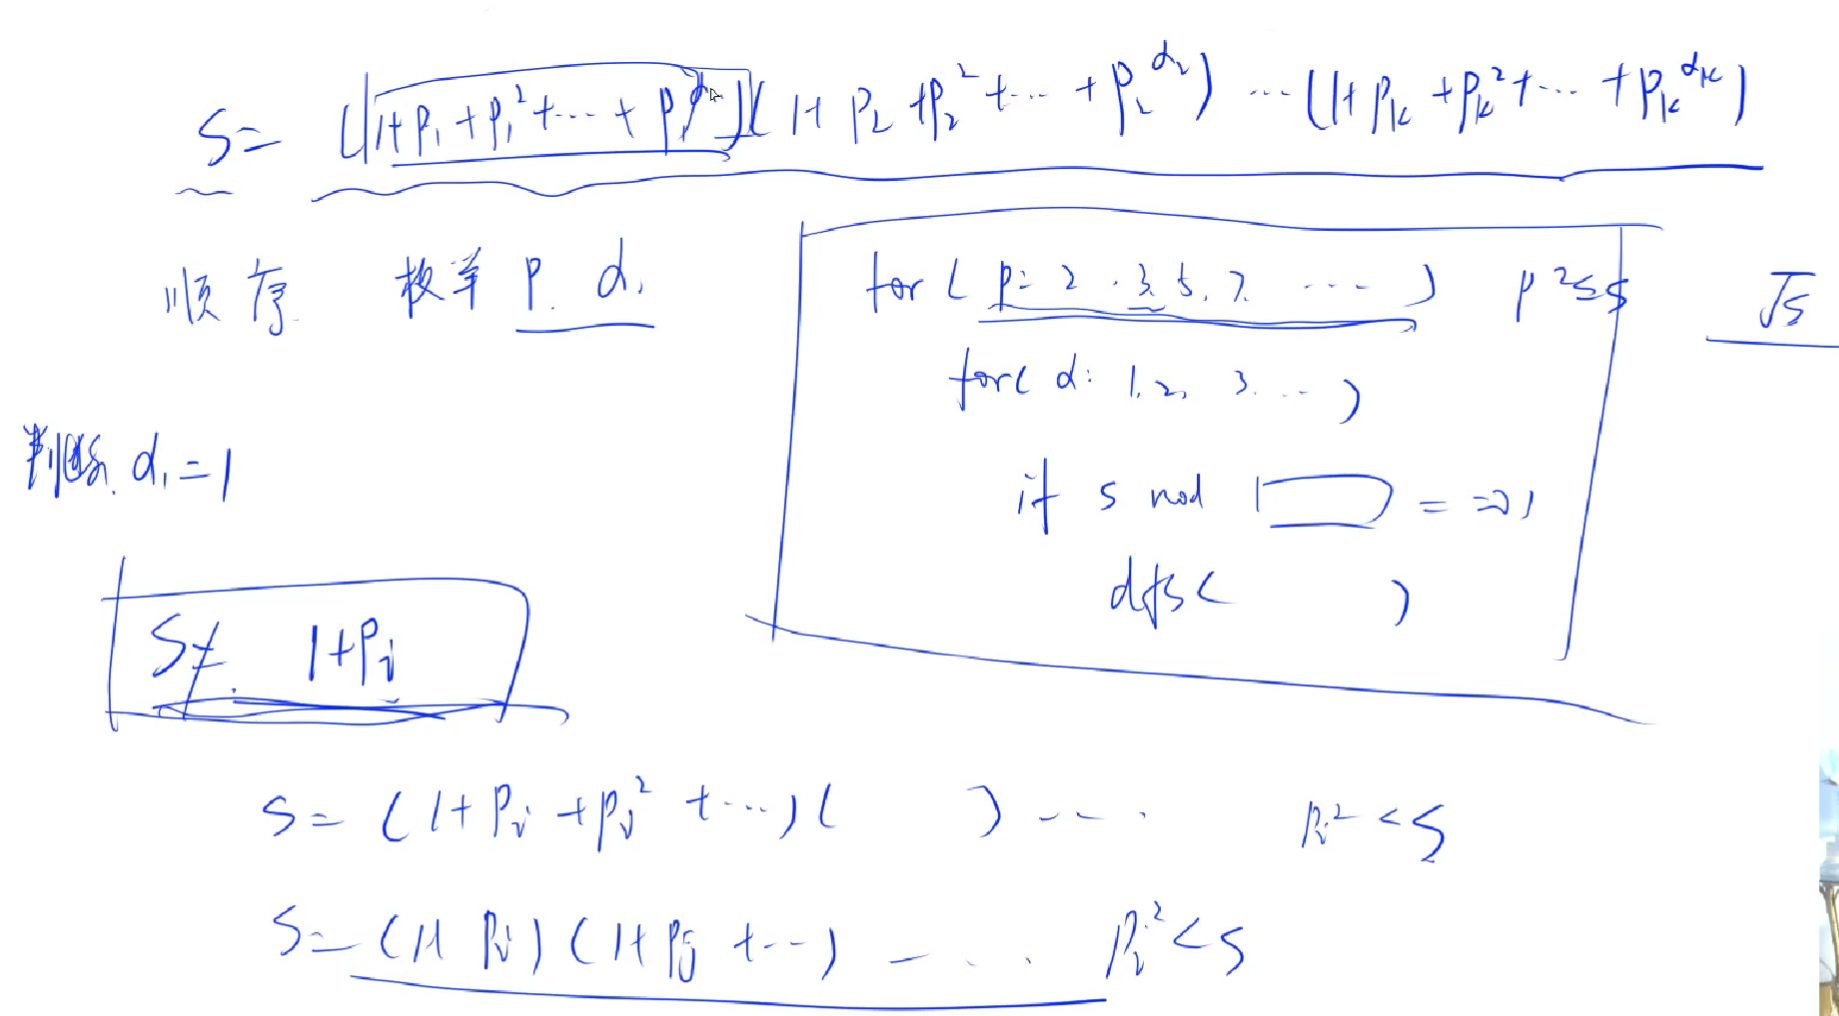 S = (1+p₁+p₁²+...+p₁^α₁)(1+p₂+p₂²+...+p₂^α₂) ... (1+pₖ+pₖ²+...+pₖ^αₖ)
顺序 枚举 p. α.
for ( p: 2. 3. 5. 7. ... ) p² ≤ s √s
for( α: 1, 2, 3. ... )
判断 α₁=1
if s mod □ == 0)
dfs( )
S ≠ 1+pᵢ
S = (1+pᵢ+pᵢ²+...)( ) ... pᵢ² < S
S = (1+pᵢ)(1+pⱼ+...) ... pᵢ² < S